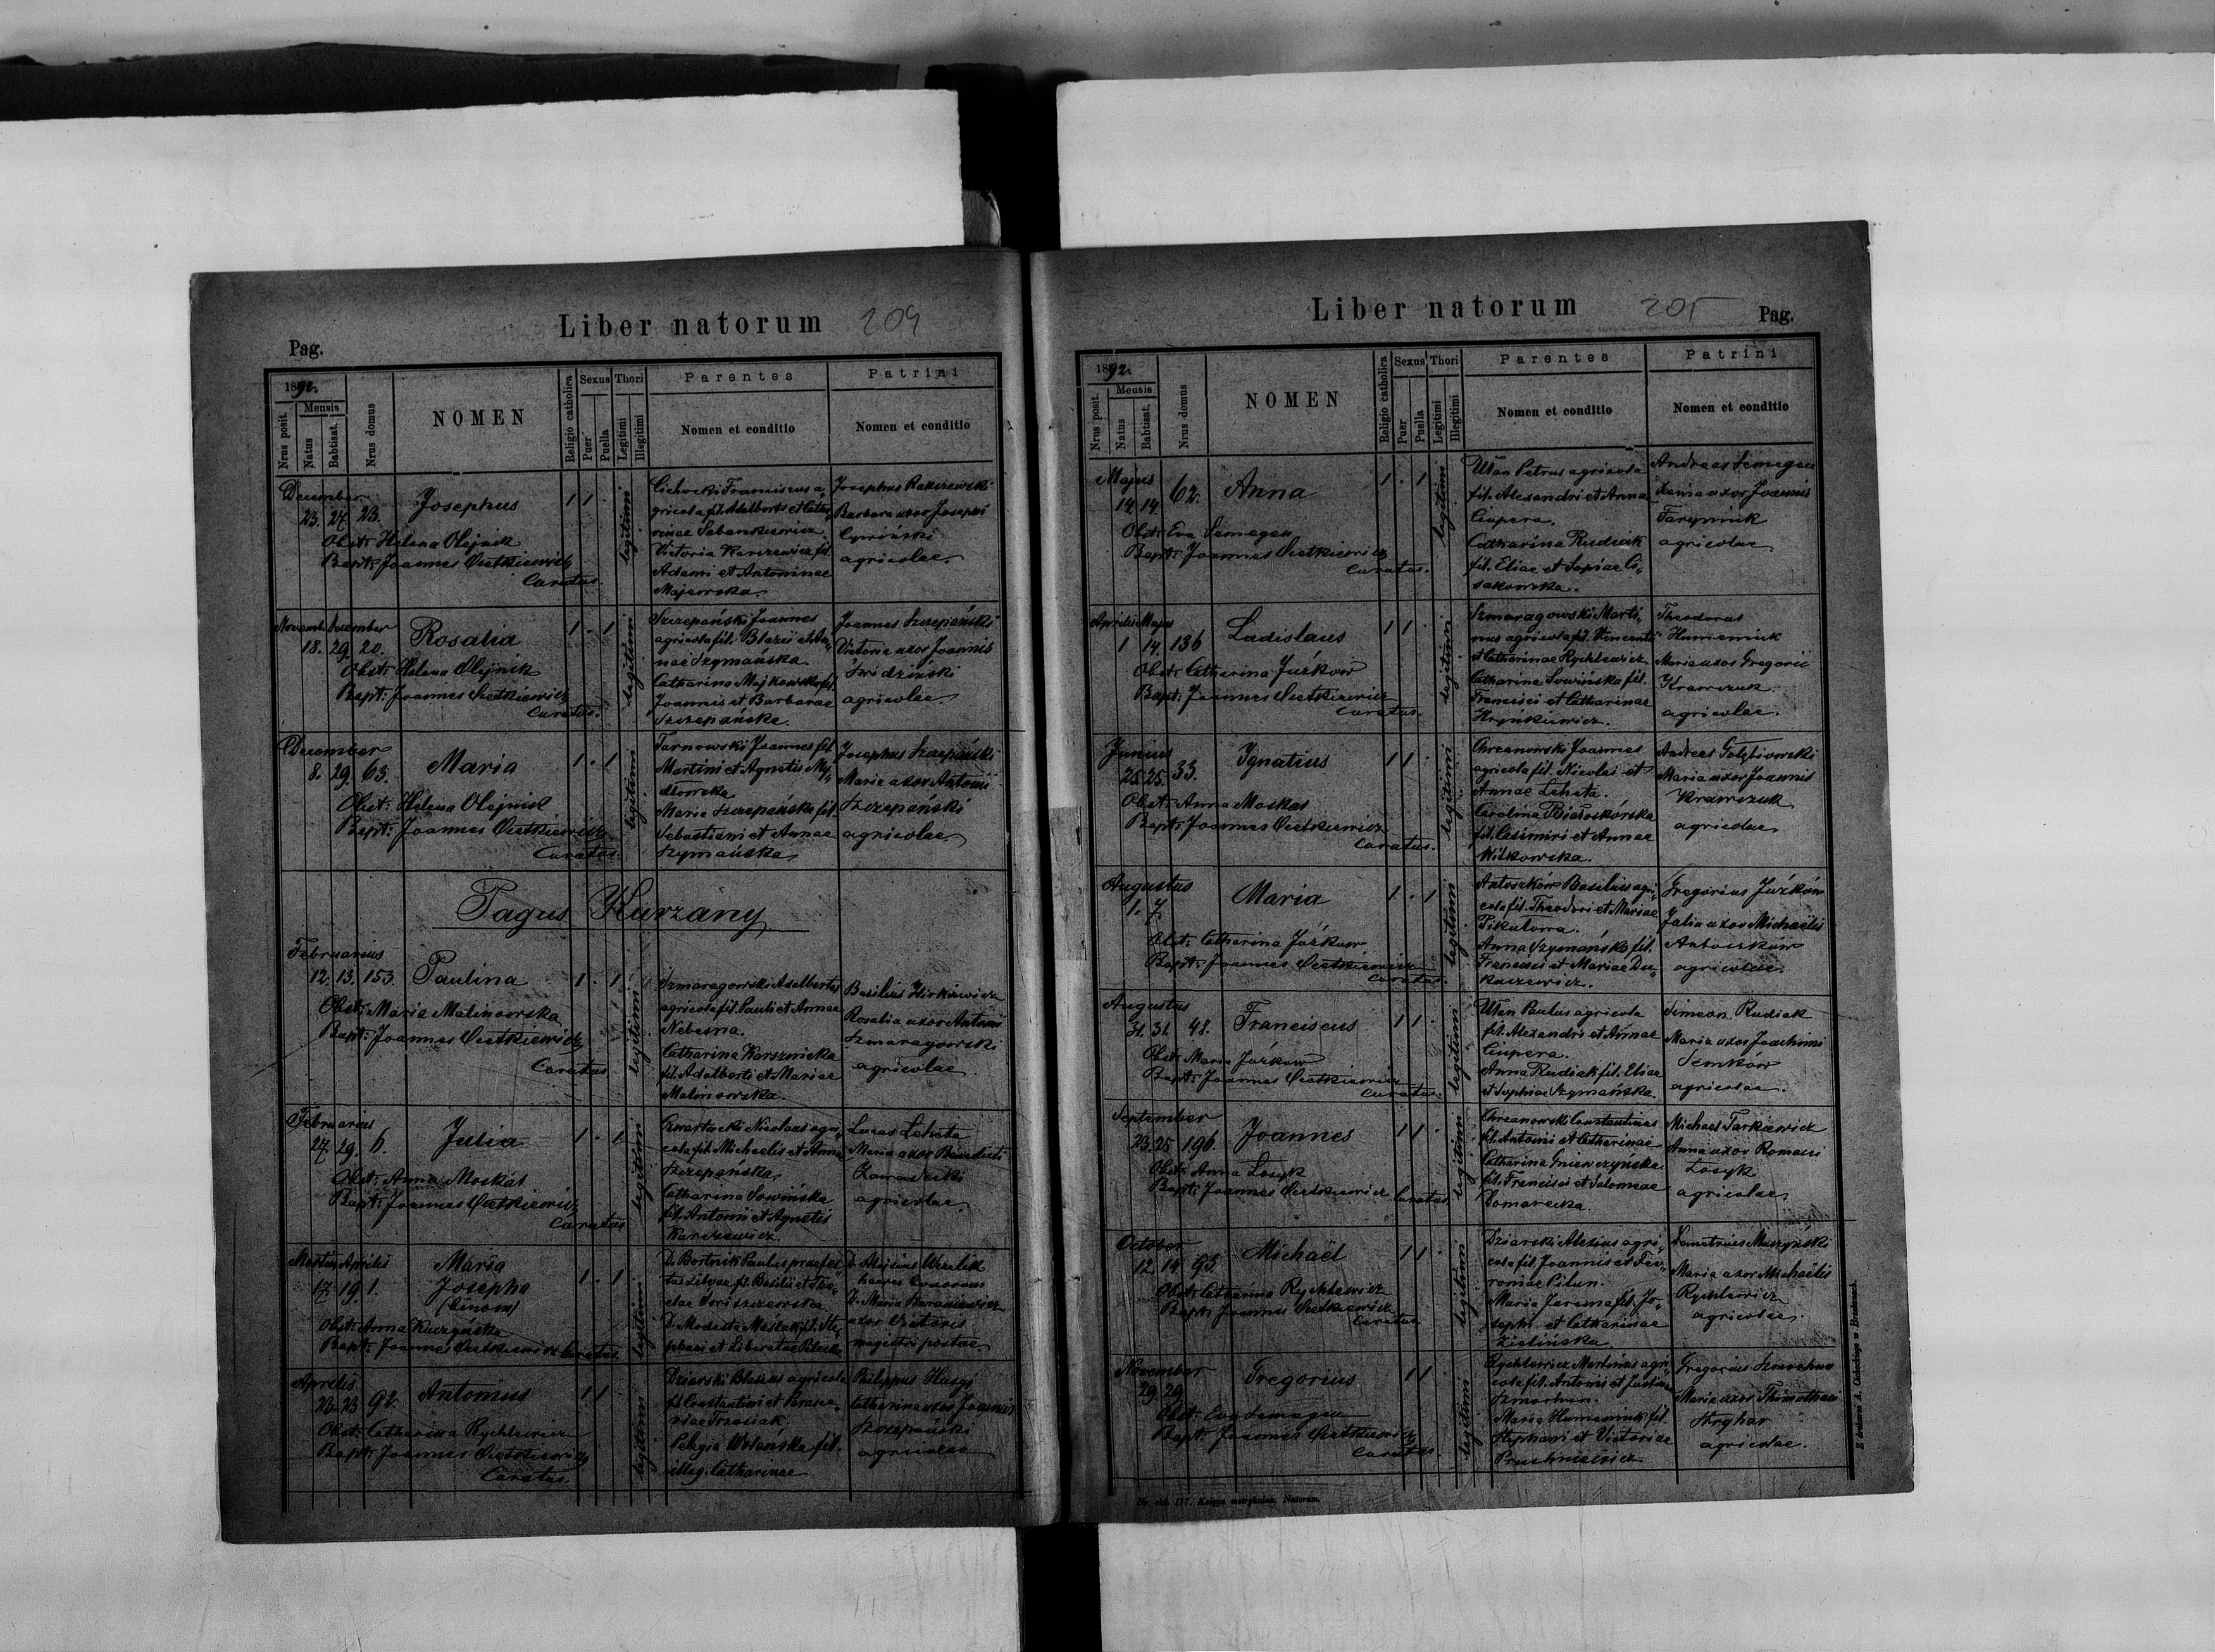 Liber natorum 204
Pag.
1892.
Nrus posit.
Mensis
Natus
Babtisat.
Nrus domus
NOMEN
Religio catholica
Sexus
Puer
Puella
Thori
Legitimi
Illegitimi
Parentes
Nomen et conditio
Patrini
Nomen et conditio
December
23. 27. 23. Josephus 1 1
Obst: Helena Olejnik
Bapt: Joannes Cietkiewicz
Curatus.
legitimi
Cichocki Franciscus a„
gricola fil. Adalberti et Catha„
rinae Sabankiewicz
Victoria Karczewicz fil.
Adami et Antoninae
Majewska.
Josephus
Barbara uxor Josephi
Cywiński
agricolae.
November December
18. 29. 20. Rosalia 1 . 1
Obst: Helena Olejnik
Bapt: Joannes Cietkiewicz
Curatus.
legitimi
Szczepański Joannes
agricola fil. Blasii et An„
nae Szymańska.
Catharina Majkowska fil.
Joannis et Barbarae
Szczepańska.
Joannes Szczepański
Victoria uxor Joannis
Świdziński
agricolae.
December
8. 29. 63. Maria 1 . 1
Obst: Helena Olejnik
Bapt: Joannes Cietkiewicz
Curatus.
legitimi
Tarnowski Joannes fil.
Martini et Agnetis My„
dłowska
Maria Szczepańska fil.
Sebastiani et Annae
Szymańska
Josephus Szczepański
Maria uxor Antonii
Szczepański
agricolae.
Pagus Kurzany
Februarius
12. 13. 153. Paulina 1 . 1
Obst: Maria Malinowska
Bapt: Joannes Cietkiewicz
Curatus
legitimi
Szmaragowski Adalbertus
agricola fil. Pauli et Annae
Nebesna.
Catharina
fil. Adalberti et Mariae
Malinowska.
Basilius
Rosalia uxor Antonii
Szmaragowski
agricolae.
Februarius
27. 29. 6. Julia 1 . 1
Obst: Anna Moskal
Bapt: Joannes Cietkiewicz
Curatus
legitimi
Czwartacki Nicolaus agri„
cola fil. Michaelis et Annae
Szczepańska
Catharina Sowińska
fil. Antonii et Agnetis
Karczewicz
Lucas Leheta
Maria uxor Benedicti
Zawadzki
agricolae.
Martius Aprilis
17. 19. 1. Maria
Josepha 1 . 1
(binom)
Obst: Anna Kuczyńska
Bapt: Joannes Cietkiewicz Curatus
legitimi
D. Bortnik Paulus praefec„
tus silvae fil. Basilii et
D. Modesta Maślak fil. Ste„
phani et Liberatae
D. Aloisius
D. Maria
uxor Victoris
magistri postae
Aprilis
23. 23. 92. Antonius 1 1
Obst: Catharina Rychlewicz
Bapt: Joannes Cietkiewicz
Curatus.
legitimi
Dziarski Blasius agricola
fil. Constantini et Parasce„
viae Trzeciak.
Pelagia Wolańska fil.
illeg. Catharinae
Philippus
Catharina uxor Joannis
Szczepański
agricolae
Liber natorum 205
Pag.
1892.
Nrus posit.
Mensis
Natus
Babtisat.
Nrus domus
NOMEN
Religio catholica
Sexus
Puer
Puella
Thori
Legitimi
Illegitimi
Parentes
Nomen et conditio
Patrini
Nomen et conditio
Majus
14. 14. 62. Anna 1 . 1
Obst: Eva Semegen
Bapt: Joannes Cietkiewicz
Curatus.
legitimi
Ułan Petrus agricola
fil. Alexandri et Annae
Ciupera.
Catharina Rudiak
fil. Eliae et Sophiae
Andreas Semegen
Xenia uxor Joannis
agricolae
Aprilis Majus
1 14. 136 Ladislaus 1 1
Obst: Catharina Juźków
Bapt: Joannes Cietkiewicz
Curatus.
legitimi
Szmaragowski Marti„
nus agricola fil. Vincentii
et Catharinae Rychlewicz
Catharina Sowińska fil.
Francisci et Catharinae
Hryńkiewicz.
Theodorus
Humeniuk
Maria uxor Gregorii
Krawczuk.
agricolae.
Junius
25. 25. 33. Ignatius 1 1
Obst: Anna Moskal
Bapt: Joannes Cietkiewicz
Curatus.
legitimi
Chrzanowski Joannes
agricola fil. Nicolai et
Annae Leheta.
Carolina Białoskórska
fil. Casimiri et Annae
Witkowska.
Andreas Gołębiowski
Maria uxor Joannis
Krawczuk
agricolae
Augustus
1. 7. Maria 1 . 1
Obst: Catharina Juźków
Bapt: Joannes Cietkiewicz
Curatus.
legitimi
Antoszków Basilius agri„
cola fil. Theodori et Mariae
Pikulowa.
Anna Szymańska fil.
Francisci et Mariae Du„
kaczewicz.
Gregorius Juźków
Julia uxor Michaelis
Antoszków
agricolae.
Augustus
31. 31. 48. Franciscus 1 1
Obst: Maria Juźków
Bapt: Joannes Cietkiewicz
Curatus.
legitimi
Ułan Paulus agricola
fil. Alexandri et Annae
Ciupera.
Anna Rudiak fil. Eliae
et Sophiae Szymańska.
Simeon Rudiak
Maria uxor Joachimi
Semków
agricolae.
September
23. 25. 196. Joannes 1 1
Obst: Anna Łosyk
Bapt: Joannes Cietkiewicz Curatus.
legitimi
Chrzanowski Constantinus
fil. Antonii et Catharinae
Catharina Gniewczyńska
fil. Francisci et Salomeae
Domarecka.
Michael Tarkiewicz
Anna uxor Romani
Łosyk
agricolae
October
12. 14. 93. Michaël 1 1
Obst: Catharina Rychlewicz
Bapt: Joannes Cietkiewicz
Curatus.
legitimi
Dziarski Alexius agri„
cola fil. Joannis et Fev„
roniae Pilun.
Maria Jarema fil. Jo„
sephi et Catharinae
Zielińska
Demetrius Muszyński
Maria uxor Michaëlis
Rychlewicz
agricolae.
November
29. 29. Gregorius 1 1
Obst: Eva Semegen
Bapt: Joannes Cietkiewicz
Curatus.
legitimi
Rychlewicz Martinus agri„
cola fil. Antonii et Justinae
Maria Humeniuk fil.
Stephani et Victoriae
Gregorius
Maria uxor Thimothaei
Hryhar
agricolae.
Nr. 177. Księga metrykalna, Natorum.